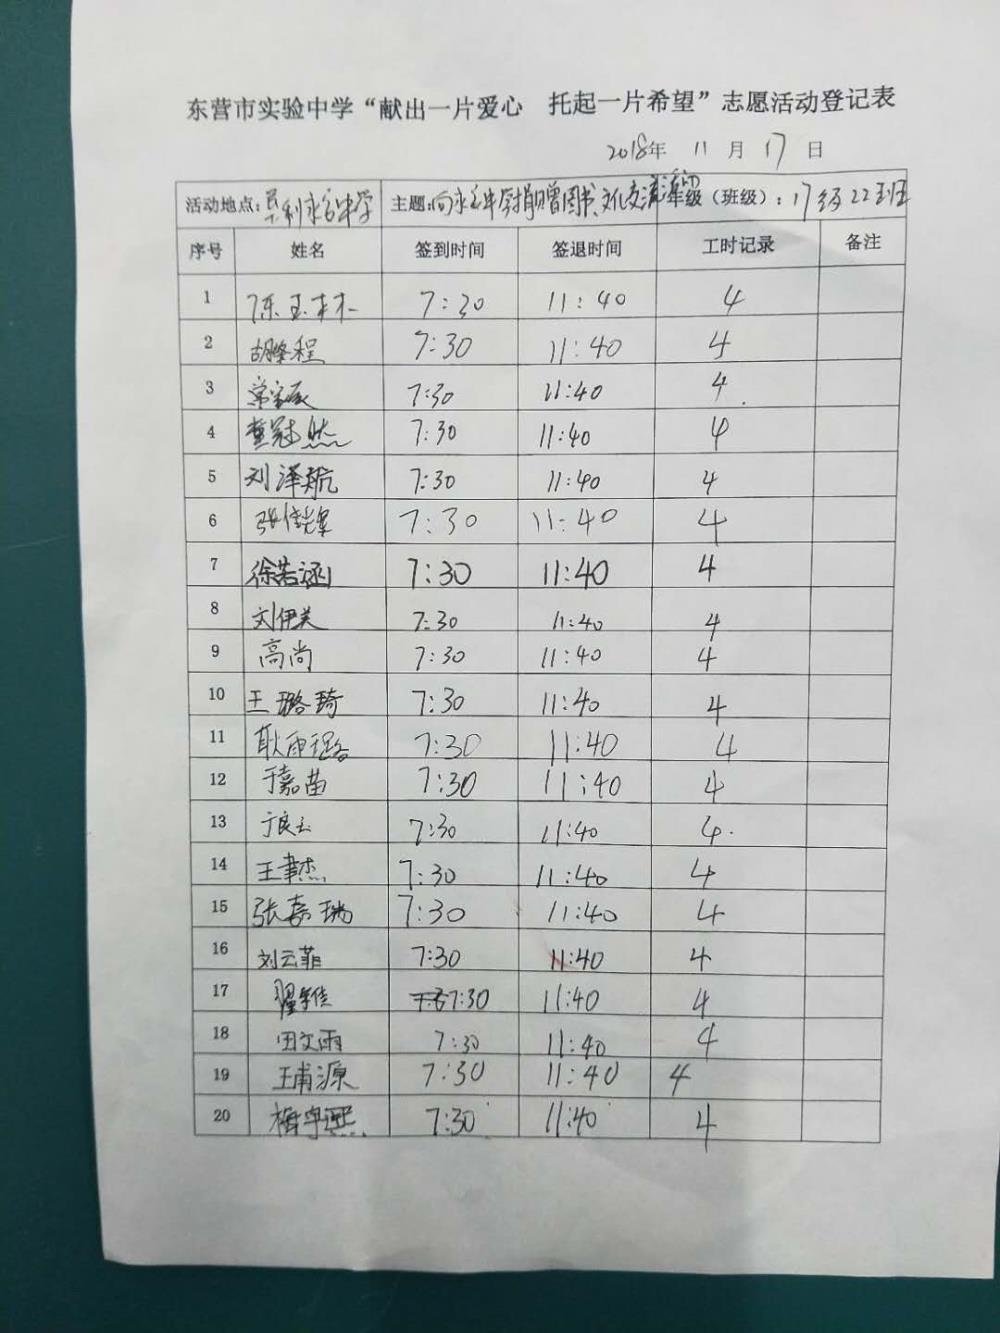 东营市实验中学“献出一片爱心 托起一片希望”志愿活动登记表
2018年 11 月 17 日
活动地点: 利永安中学 主题: 向永安中学捐赠图书、文化交流 年级（班级）: 17级22班
序号 姓名 签到时间 签退时间 工时记录 备注
1 陈玉林 7:30 11:40 4
2 胡 程 7:30 11:40 4
3 常 辰 7:30 11:40 4
4 冠然 7:30 11:40 4
5 刘泽航 7:30 11:40 4
6 张 7:30 11:40 4
7 徐若涵 7:30 11:40 4
8 刘伊美 7:30 11:40 4
9 高尚 7:30 11:40 4
10 王璐琦 7:30 11:40 4
11 耿雨璐 7:30 11:40 4
12 于嘉苗 7:30 11:40 4
13 于良云 7:30 11:40 4.
14 王聿杰 7:30 11:40 4
15 张嘉瑞 7:30 11:40 4
16 刘云菲 7:30 11:40 4
17 翟 佳 7:30 11:40 4
18 田文雨 7:30 11:40 4
19 王甫源 7:30 11:40 4
20 梅宇熙 7:30 11:40 4